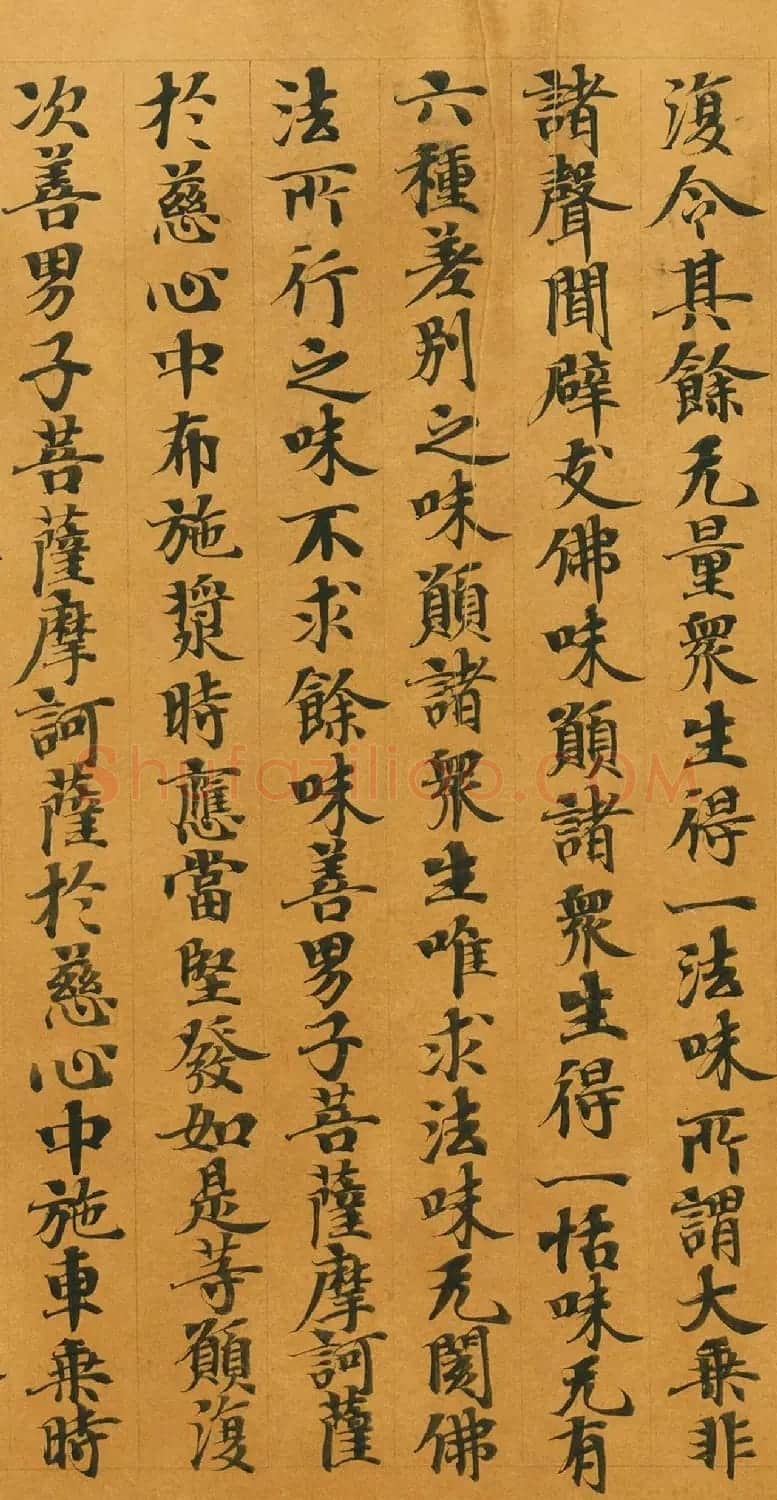 復令其餘无量眾生得一法味所謂大乘非
諸聲聞辟支佛味願諸眾生得一恬味无有
六種差別之味願諸眾生唯求法味无閡佛
法所行之味不求餘味善男子菩薩摩訶薩
於慈心中布施漿時應當堅發如是等願復
次善男子菩薩摩訶薩於慈心中施車乘時
Shufaziliao.COM